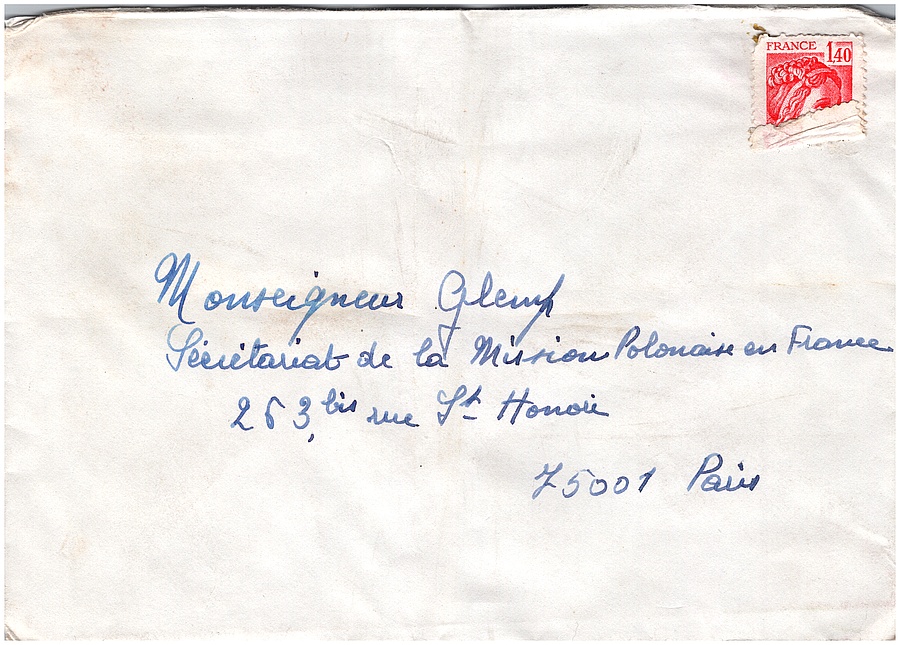 FRANCE
1,40
Monseigneur Glemp
Sécrétariat de la Mission Polonaise en France
263 bis rue St Honoré
75001 Paris